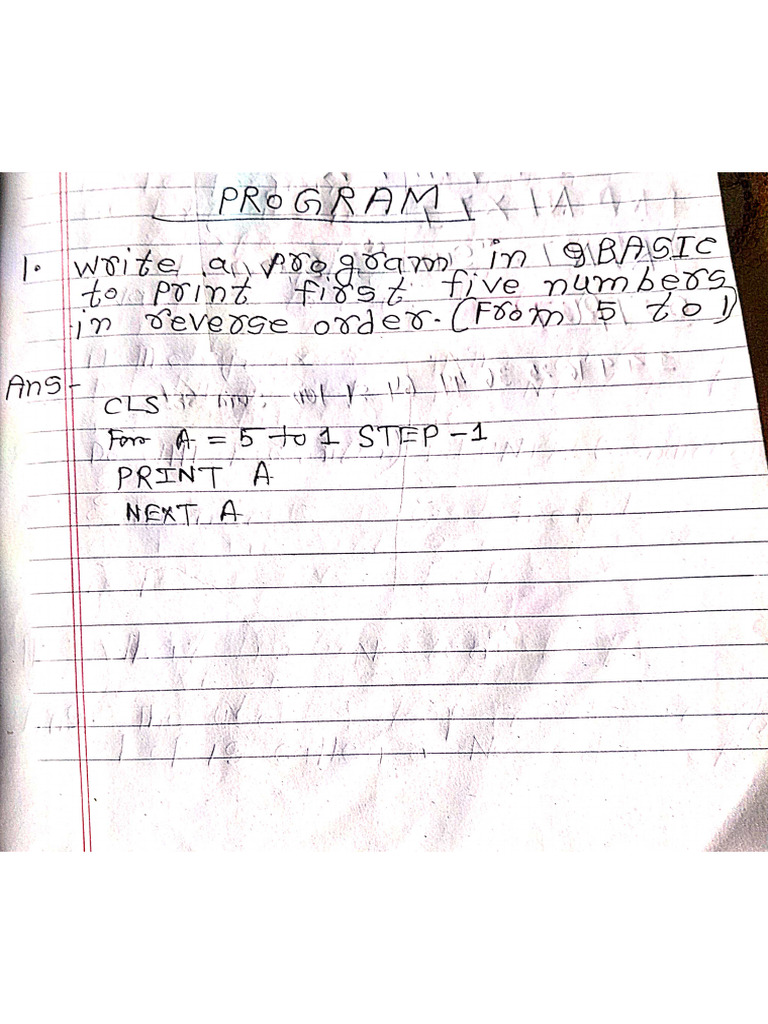 PROGRAM
1. write a program in qBASIC
to print first five numbers
in reverse order. (From 5 to 1)
Ans-
CLS
For A = 5 to 1 STEP -1
PRINT A
NEXT A